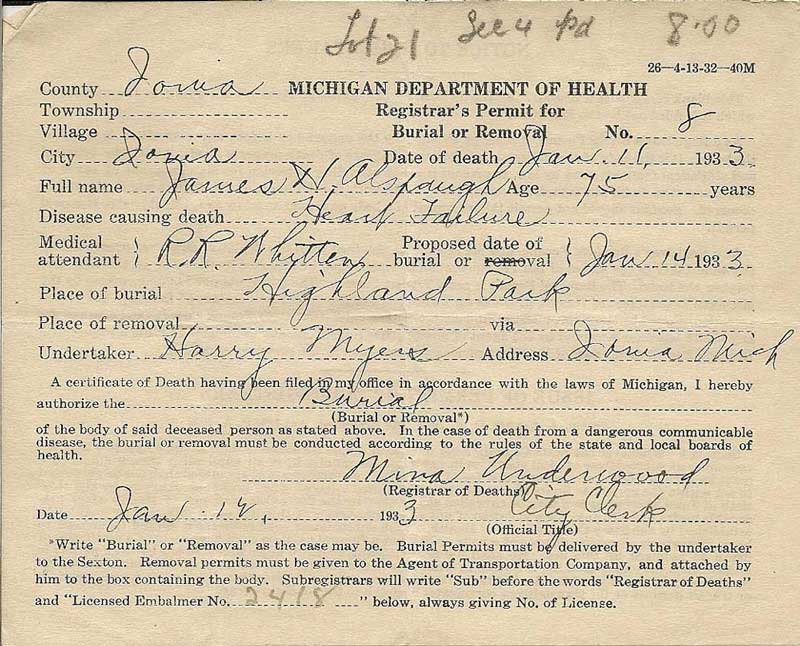 Lot 21 Sec 4 Pd 8.00
26—4-13-32—40M
County Ionia MICHIGAN DEPARTMENT OF HEALTH
Township Registrar's Permit for
Village Burial or Removal No. 8
City Ionia Date of death Jan. 11, 1933
Full name James H. Alspaugh Age 75 years
Disease causing death Heart Failure
Medical attendant } R. R. Whitten Proposed date of burial or removal } Jan 14 1933
Place of burial Highland Park
Place of removal via
Undertaker Harry Myers Address Ionia Mich
A certificate of Death having been filed in my office in accordance with the laws of Michigan, I hereby
authorize the Burial
(Burial or Removal*)
of the body of said deceased person as stated above. In the case of death from a dangerous communicable
disease, the burial or removal must be conducted according to the rules of the state and local boards of
health.
Mina Underwood
(Registrar of Deaths)
City Clerk
Date Jan. 12, 1933
(Official Title)
*Write "Burial" or "Removal" as the case may be. Burial Permits must be delivered by the undertaker
to the Sexton. Removal permits must be given to the Agent of Transportation Company, and attached by
him to the box containing the body. Subregistrars will write "Sub" before the words "Registrar of Deaths"
and "Licensed Embalmer No. 2418" below, always giving No. of License.